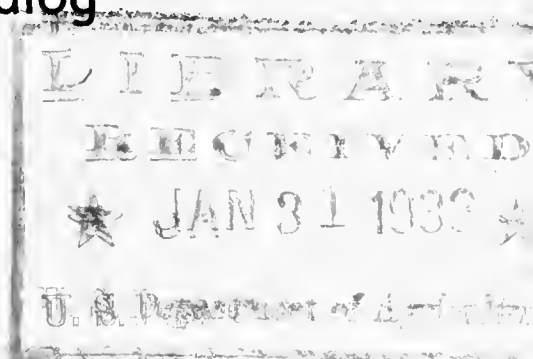 alog
LIBRARY
RECEIVED
★ JAN 31 ★
U. S. Department of Agriculture